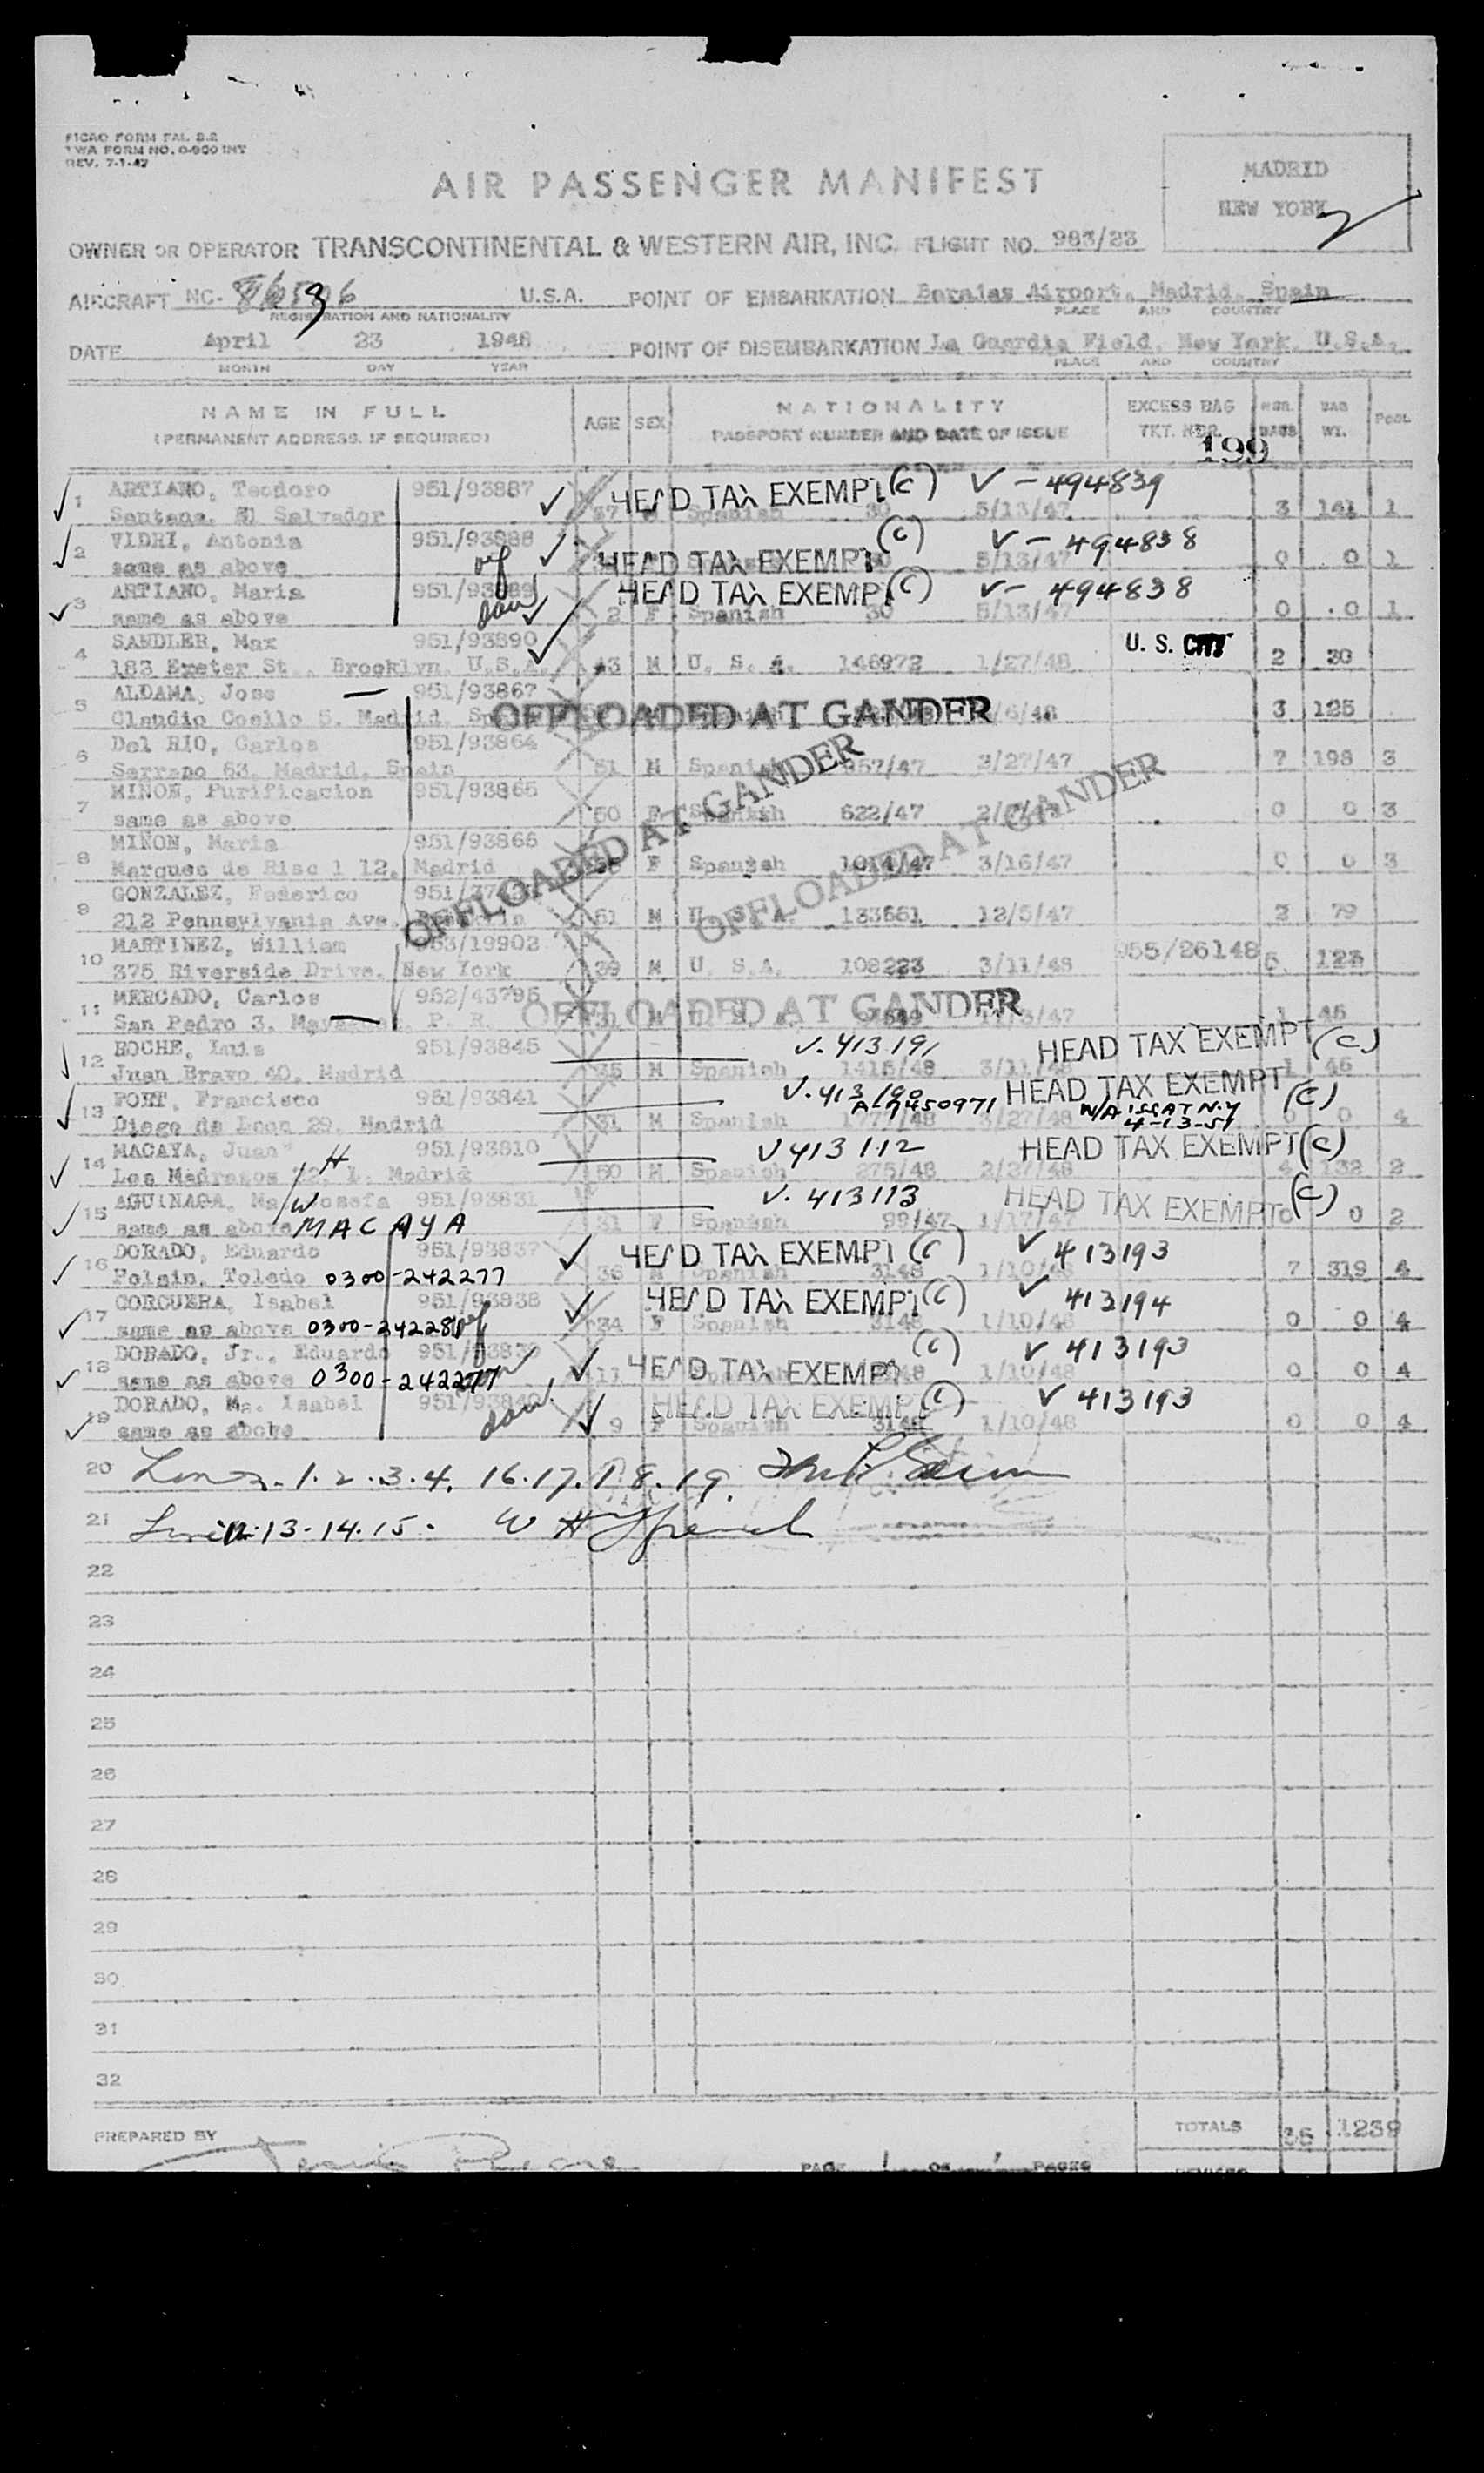 FICAO FORM FAL 2.2
TWA FORM NO. O-900 INT
REV. 7-1-47
AIR PASSENGER MANIFEST
MADRID
NEW YORK
OWNER OR OPERATOR TRANSCONTINENTAL & WESTERN AIR, INC. FLIGHT NO. 983/23
AIRCRAFT NC- U.S.A. POINT OF EMBARKATION Barajas Airport, Madrid, Spain
REGISTRATION AND NATIONALITY PLACE AND COUNTRY
DATE April 23 1948 POINT OF DISEMBARKATION La Guardia Field, New York, U.S.A.
MONTH DAY YEAR PLACE AND COUNTRY
NAME IN FULL AGE SEX NATIONALITY EXCESS BAG NBR. BAG POOL
(PERMANENT ADDRESS, IF REQUIRED) PASSPORT NUMBER AND DATE OF ISSUE TKT. NBR. BAGS WT.
199
1 ARTIANO, Teodoro 951/93887 HEAD TAX EXEMPT (C) V-494839
Santana, El Salvador Spanish 30 5/13/47 3 141 1
2 VIDRI, Antonia 951/93888 wf HEAD TAX EXEMPT (C) V-494838
same as above 5/13/47 0 0 1
3 ARTIANO, Maria 951/93889 dau HEAD TAX EXEMPT (C) V-494838
same as above 2 F Spanish 30 5/13/47 0 0 1
4 SANDLER, Max 951/93890 U. S. CIT
183 Exeter St., Brooklyn, U.S.A. 43 M U. S. A. 146972 1/27/48 2 30
5 ALDAMA, Jose 951/93867 OFFLOADED AT GANDER
Claudio Coello 5, Madrid, /6/48 3 125
6 Del RIO, Carlos 951/93864
Serrano 63, Madrid, Spain 51 M Spanish 957/47 3/27/47 7 198 3
7 MINON, Purificacion 951/93865
same as above 50 F Spanish 622/47 0 0 3
OFFLOADED AT GANDER
OFFLOADED AT GANDER
8 MIÑON, Maria 951/93866
Marques de Risc l 12, Madrid F Spanish 1014/47 3/16/47 0 0 3
9 GONZALEZ, Federico
212 Pennsylvania Ave. 61 M U. S. A. 183661 12/5/47 2 79
10 MARTINEZ, William 953/19902 955/26148
375 Riverside Drive, New York 39 M U. S.A. 108223 3/11/48 5 123
11 MERCADO, Carlos 952/43795 OFFLOADED AT GANDER
San Pedro 3, P. R. 31 M 1 45
12 ROCHE, Luis 951/93845 V. 413191 HEAD TAX EXEMPT (C)
Juan Bravo 40, Madrid 35 M Spanish 1415/48 3/11/48 1 46
13 FONT, Francisco 951/93841 V. 413190 HEAD TAX EXEMPT (C)
A 7450971 W/A ISS AT N.Y
4-13-51
Diego de Leon 29, Madrid 31 M Spanish 1777/48 3/27/48 0 0 4
14 MACAYA, Juan H 951/93810 V413112 HEAD TAX EXEMPT (C)
Los Madrazos 22, Madrid 50 M Spanish 275/48 2/27/48 4 132 2
15 AGUINAGA, Ma Josefa W 951/93831 V. 413113 HEAD TAX EXEMPT (C)
same as above MACAYA 31 F Spanish 99/47 1/17/47 0 0 2
16 DORADO, Eduardo 951/93837 HEAD TAX EXEMPT (C) V 413193
Holgin, Toledo 0300-242277 36 M Spanish 3148 1/10/48 7 319 4
17 CORCUERA, Isabel 951/93838 HEAD TAX EXEMPT (C) V 413194
same as above 0300-242280 wf 34 F Spanish 3148 1/10/48 0 0 4
18 DORADO, Jr., Eduardo HEAD TAX EXEMPT (C) V 413193
same as above 0300-242277 11 1/10/48 0 0 4
19 DORADO, Ma. Isabel 951/93840 dau HEAD TAX EXEMPT (C) V 413193
same as above 9 F Spanish 3148 1/10/48 0 0 4
20 Lines-1.2.3.4. 16.17.18.19.
21 Line 12-13-14.15.
22
23
24
25
26
27
28
29
30
31
32
PREPARED BY TOTALS 36 1239
PAGE 1 OF 1 PAGES